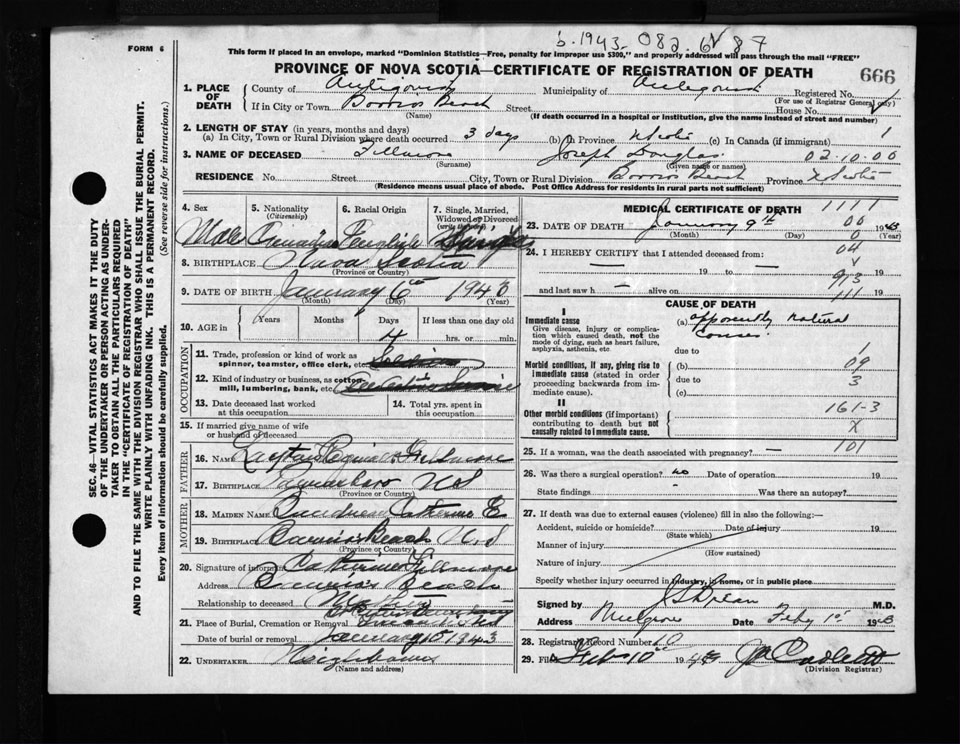 b. 1943- 082 6 87
FORM 6
This form if placed in an envelope, marked "Dominion Statistics—Free, penalty for improper use $300," and properly addressed will pass through the mail "FREE"
PROVINCE OF NOVA SCOTIA—CERTIFICATE OF REGISTRATION OF DEATH
666
1. PLACE OF DEATH
County of Antigonish Municipality of Antigonish Registered No. 1
(For use of Registrar General only)
If in City or Town Street House No.
(Name) (If death occurred in a hospital or institution, give the name instead of street and number)
2. LENGTH OF STAY (in years, months and days)
(a) In City, Town or Rural Division where death occurred 3 days (b) In Province N Scotia (c) In Canada (if immigrant) 1
3. NAME OF DECEASED Fillmore Joseph Douglas 02.10.00
(Surname) (Given name or names)
RESIDENCE No. Street City, Town or Rural Division Beach Province N Scotia
(Residence means usual place of abode. Post Office Address for residents in rural parts not sufficient)
4. Sex 5. Nationality (Citizenship) 6. Racial Origin 7. Single, Married, Widowed or Divorced (write the word)
Male Canadian English Single
8. BIRTHPLACE Nova Scotia
(Province or County)
9. DATE OF BIRTH January 6th 1943
(Month) (Day) (Year)
10. AGE in Years Months Days If less than one day old
4 hrs. or min.
OCCUPATION
11. Trade, profession or kind of work as spinner, teamster, office clerk, etc.
12. Kind of industry or business, as cotton mill, lumbering, bank, etc.
13. Date deceased last worked at this occupation
14. Total yrs. spent in this occupation
15. If married give name of wife or husband of deceased
FATHER
16. NAME Fillmore
17. BIRTHPLACE N.S
(Province or County)
MOTHER
18. MAIDEN NAME Catherine E
19. BIRTHPLACE Beach N.S
(Province or County)
20. Signature of informant Catherine Fillmore
Address Beach
Relationship to deceased Mother
21. Place of Burial, Cremation or Removal
Date of burial or removal January 10 1943
22. UNDERTAKER Neighbours
(Name and address)
MEDICAL CERTIFICATE OF DEATH 1111
23. DATE OF DEATH January 9th 00 1943
(Month) (Day) 0 (Year)
24. I HEREBY CERTIFY that I attended deceased from: 04
— 19 to — 19
and last saw h — alive on 913
111 19
CAUSE OF DEATH
I
Immediate cause (a) apparently natural causes
Give disease, injury or complication which caused death, not the mode of dying, such as heart failure, asphyxia, asthenia, etc.
due to 1
Morbid conditions, if any, giving rise to immediate cause (stated in order proceeding backwards from immediate cause).
(b) 09
due to 3
(c)
II
Other morbid conditions (if important) contributing to death but not causally related to immediate cause.
161-3
X
25. If a woman, was the death associated with pregnancy? — 101
26. Was there a surgical operation? no Date of operation 19
State findings — Was there an autopsy?
27. If death was due to external causes (violence) fill in also the following:—
Accident, suicide or homicide? Date of injury 19
(State which)
Manner of injury
(How sustained)
Nature of injury
Specify whether injury occurred in industry, in home, or in public place
Signed by M.D.
Address Mulgrave Date Feby 1st 1943
28. Registrar's Record Number
29. Filed Feb 10 1943
(Division Registrar)
SEC. 46—VITAL STATISTICS ACT MAKES IT THE DUTY
OF THE UNDERTAKER OR PERSON ACTING AS UNDER-
TAKER TO OBTAIN ALL THE PARTICULARS REQUIRED
IN THE "CERTIFICATE OF REGISTRATION OF DEATH"
AND TO FILE THE SAME WITH THE DIVISION REGISTRAR WHO SHALL ISSUE THE BURIAL PERMIT.
WRITE PLAINLY WITH UNFADING INK. THIS IS A PERMANENT RECORD.
Every item of information should be carefully supplied. (See reverse side for instructions.)